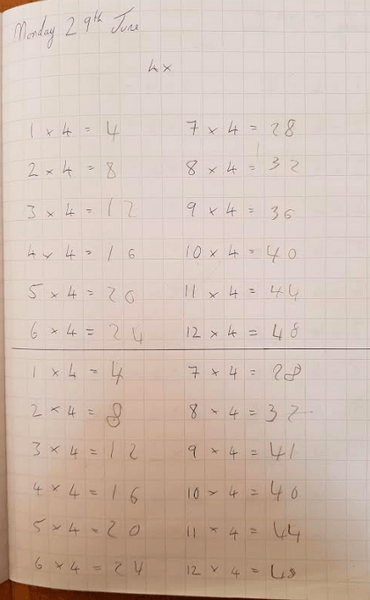 Monday 29th June
4x
1 x 4 = 4 7 x 4 = 28
2 x 4 = 8 8 x 4 = 32
3 x 4 = 12 9 x 4 = 36
4 x 4 = 16 10 x 4 = 40
5 x 4 = 20 11 x 4 = 44
6 x 4 = 24 12 x 4 = 48
1 x 4 = 4 7 x 4 = 28
2 x 4 = 8 8 x 4 = 32
3 x 4 = 12 9 x 4 = 41
4 x 4 = 16 10 x 4 = 40
5 x 4 = 20 11 x 4 = 44
6 x 4 = 24 12 x 4 = 48